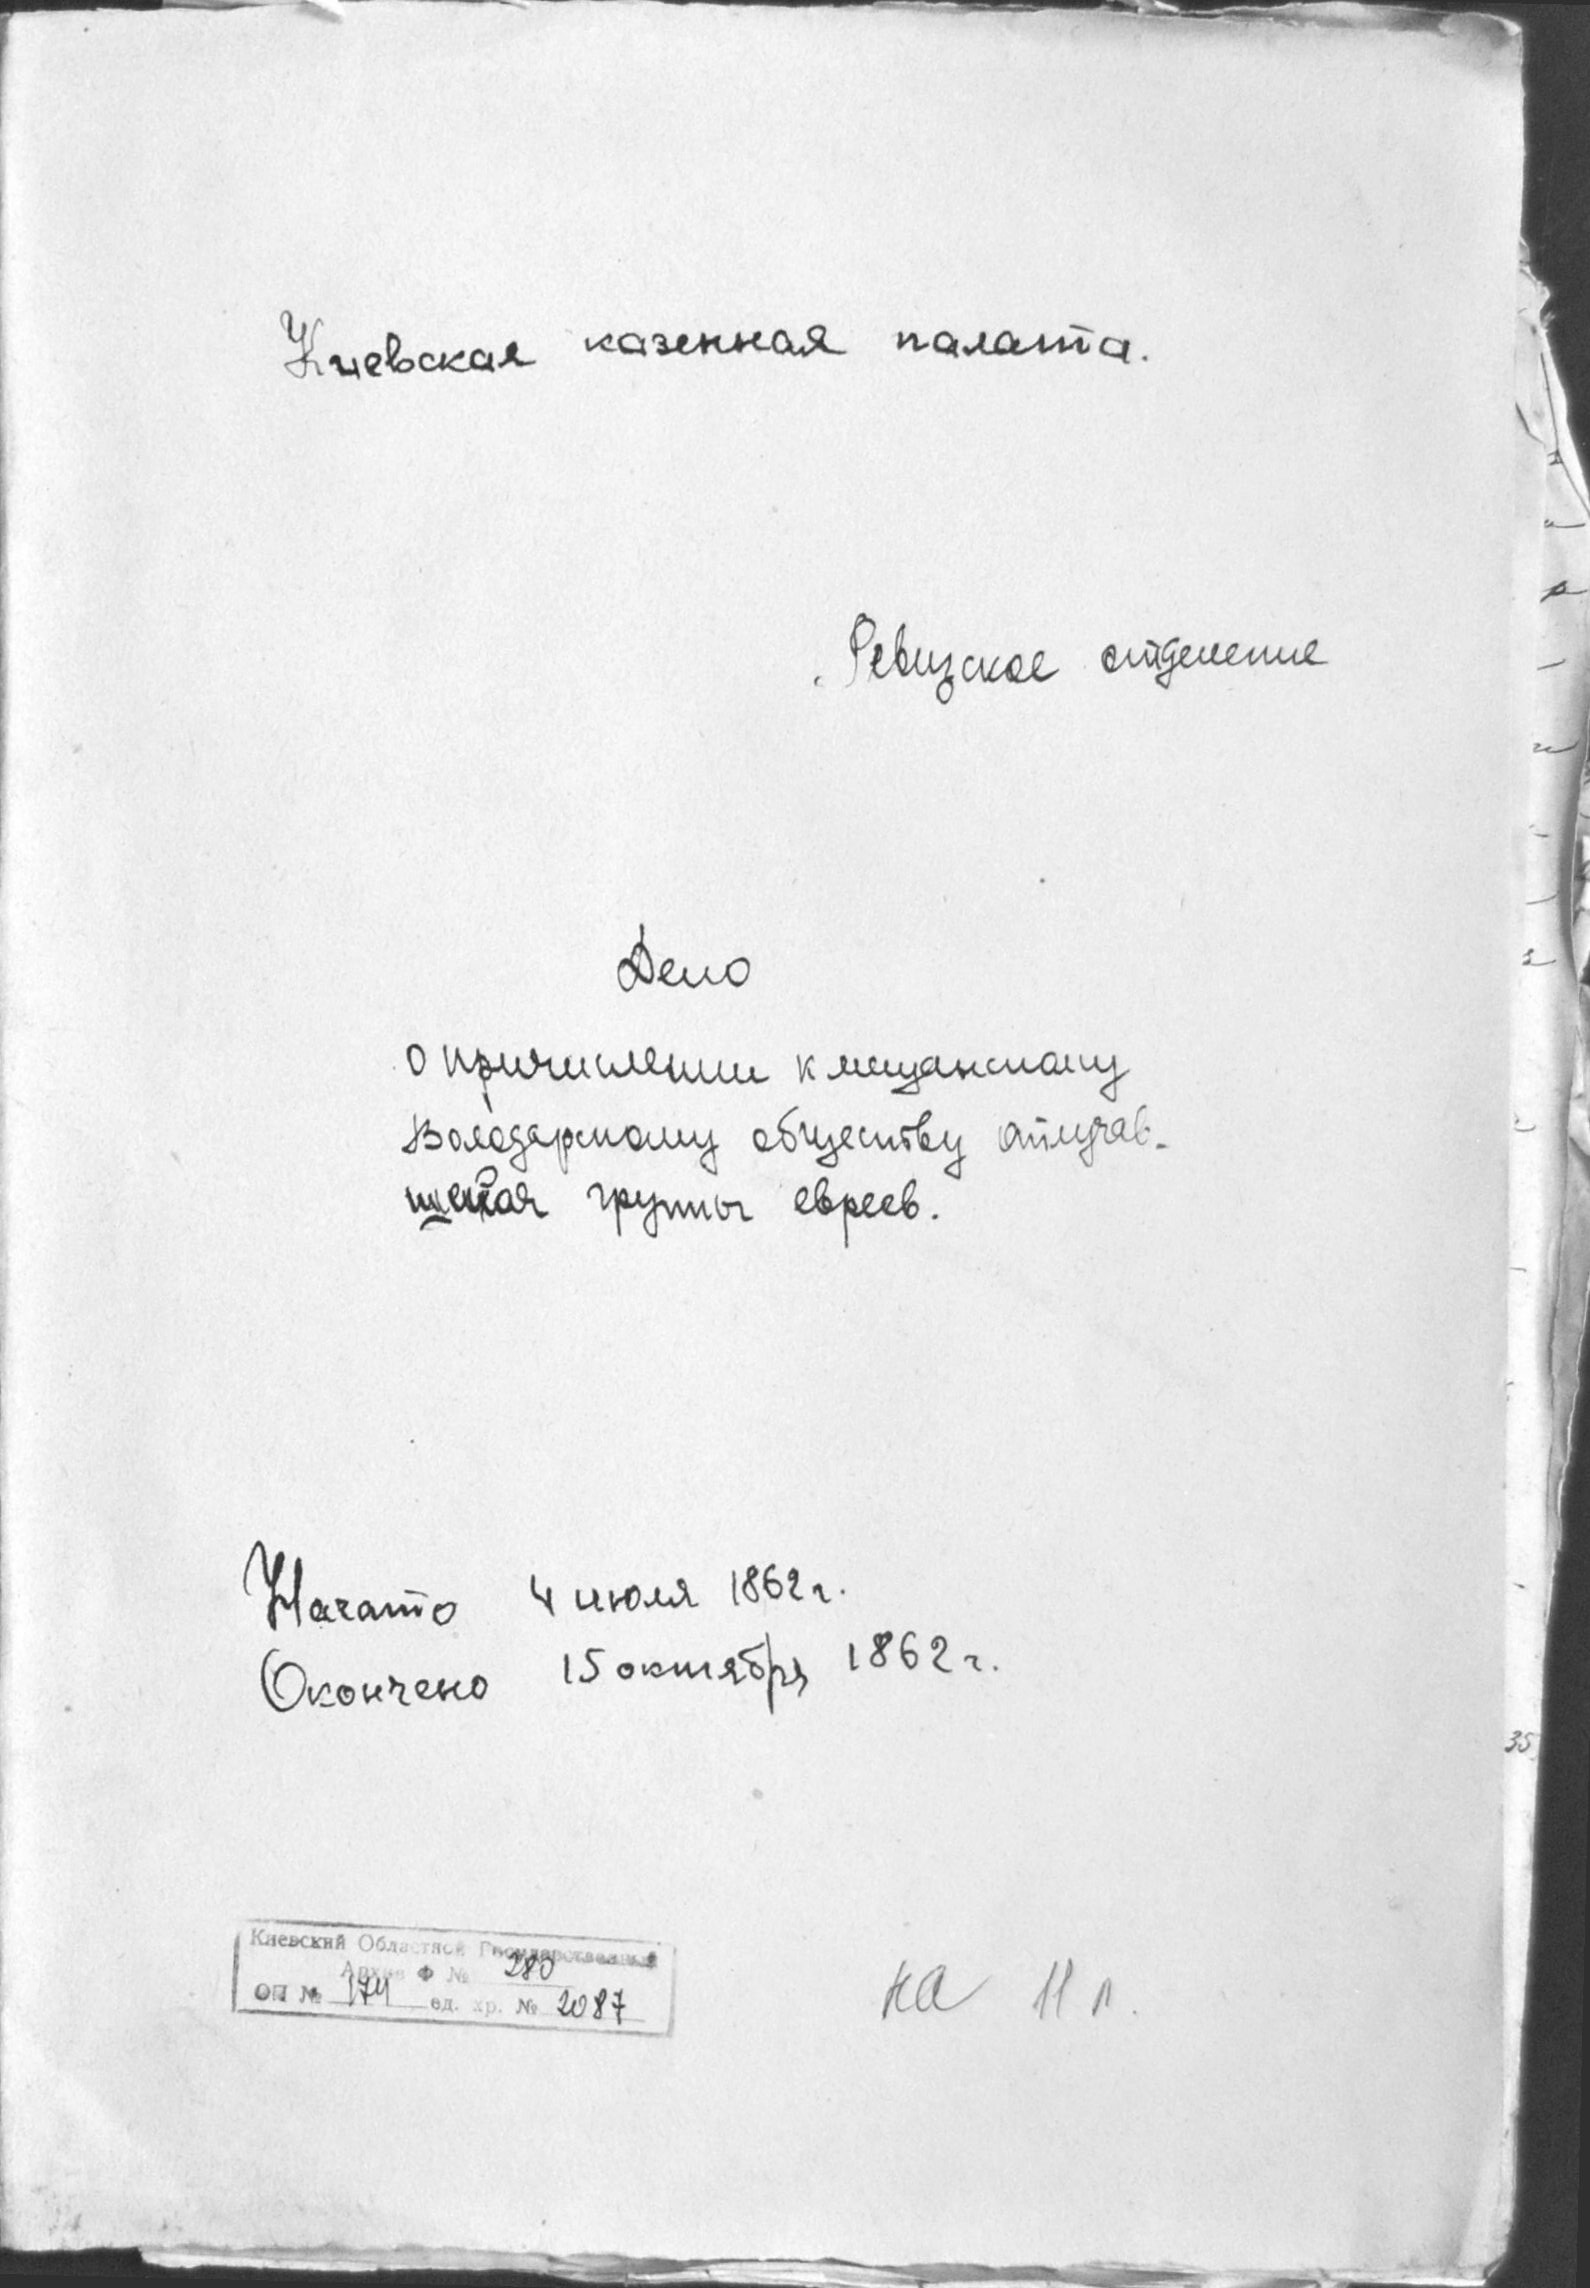 Киевская казенная палата.
Ревизское отделение
Дело
о причислении к мещанскому
Володарскому обществу отлучав-
шейся группы евреев.
Начато 4 июля 1862 г.
Окончено 15 октября 1862 г.
Киевский Областной Государственный
Архив Ф № 280
ОП № 174 ед. хр. № 2087
на 11 л.
35